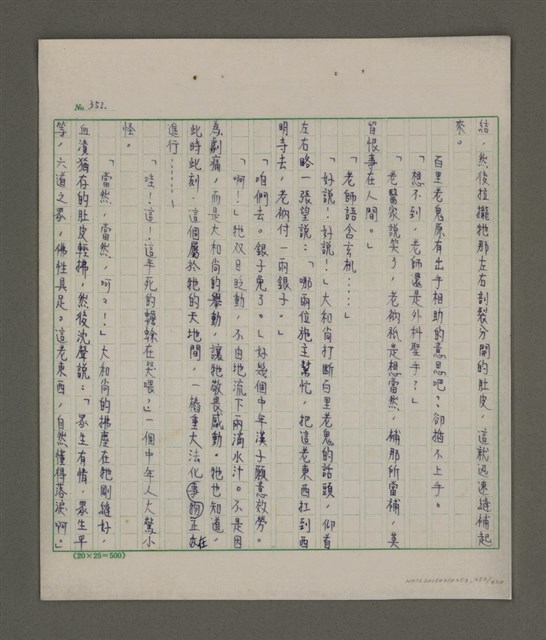 No. 352.
結，然後拉攏牠那左右割裂分開的肚皮，這就迅速縫補起
來。
百里老鬼原有出手相助的意思吧？卻插不上手。
「想不到，老師還是外科聖手？」
「老醫家說笑了，老衲祇是想當然，補那所當補，莫
留恨事在人間。」
「老師語含玄机……」
「好說！好說！」大和尚打斷百里老鬼的話頭，仰首
左右略一張望說：「哪兩位施主幫忙，把這老東西扛到西
明寺去，老衲付一兩銀子。」
「咱們去。銀子免了。」好幾個中年漢子願意效勞。
「啊！」牠双目眨動，不由地流下兩滴水汁。不是因
為劇痛，而是大和尚的舉動，讓牠敬畏感動。牠也知道，
此時此刻，這個屬於牠的天地間，一樁重大法化事物正在
進行……
「哇！這！這半死的蟾蜍在哭喂？」一個中年人大驚小
怪。
「當然，當然，呵呵！」大和尚的拂塵在牠剛縫好，
血漬猶存的肚皮輕拂，然後沈聲說：「眾生有情，眾生平
等，六道之眾，佛性具足。這老東西，自然懂得落淚啊。」
(20×25=500)